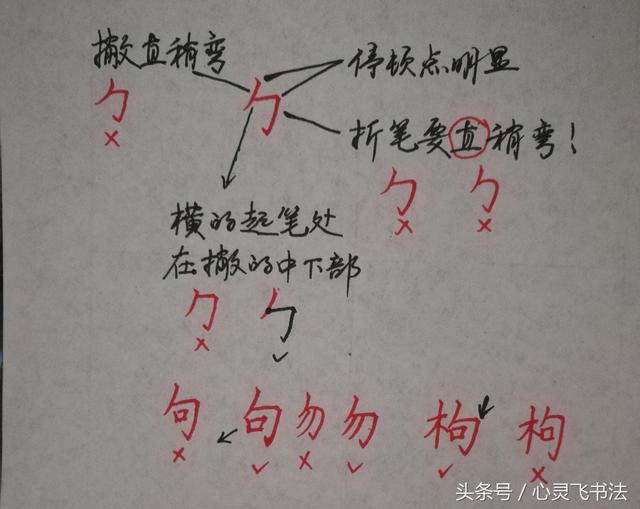 撇直稍弯
停顿点明显
勹
勹
折笔要直稍弯！
勹 勹
横的起笔处
在撇的中下部
勹 勹
句 句 勿 勿 枸 枸
头条号 / 心灵飞书法